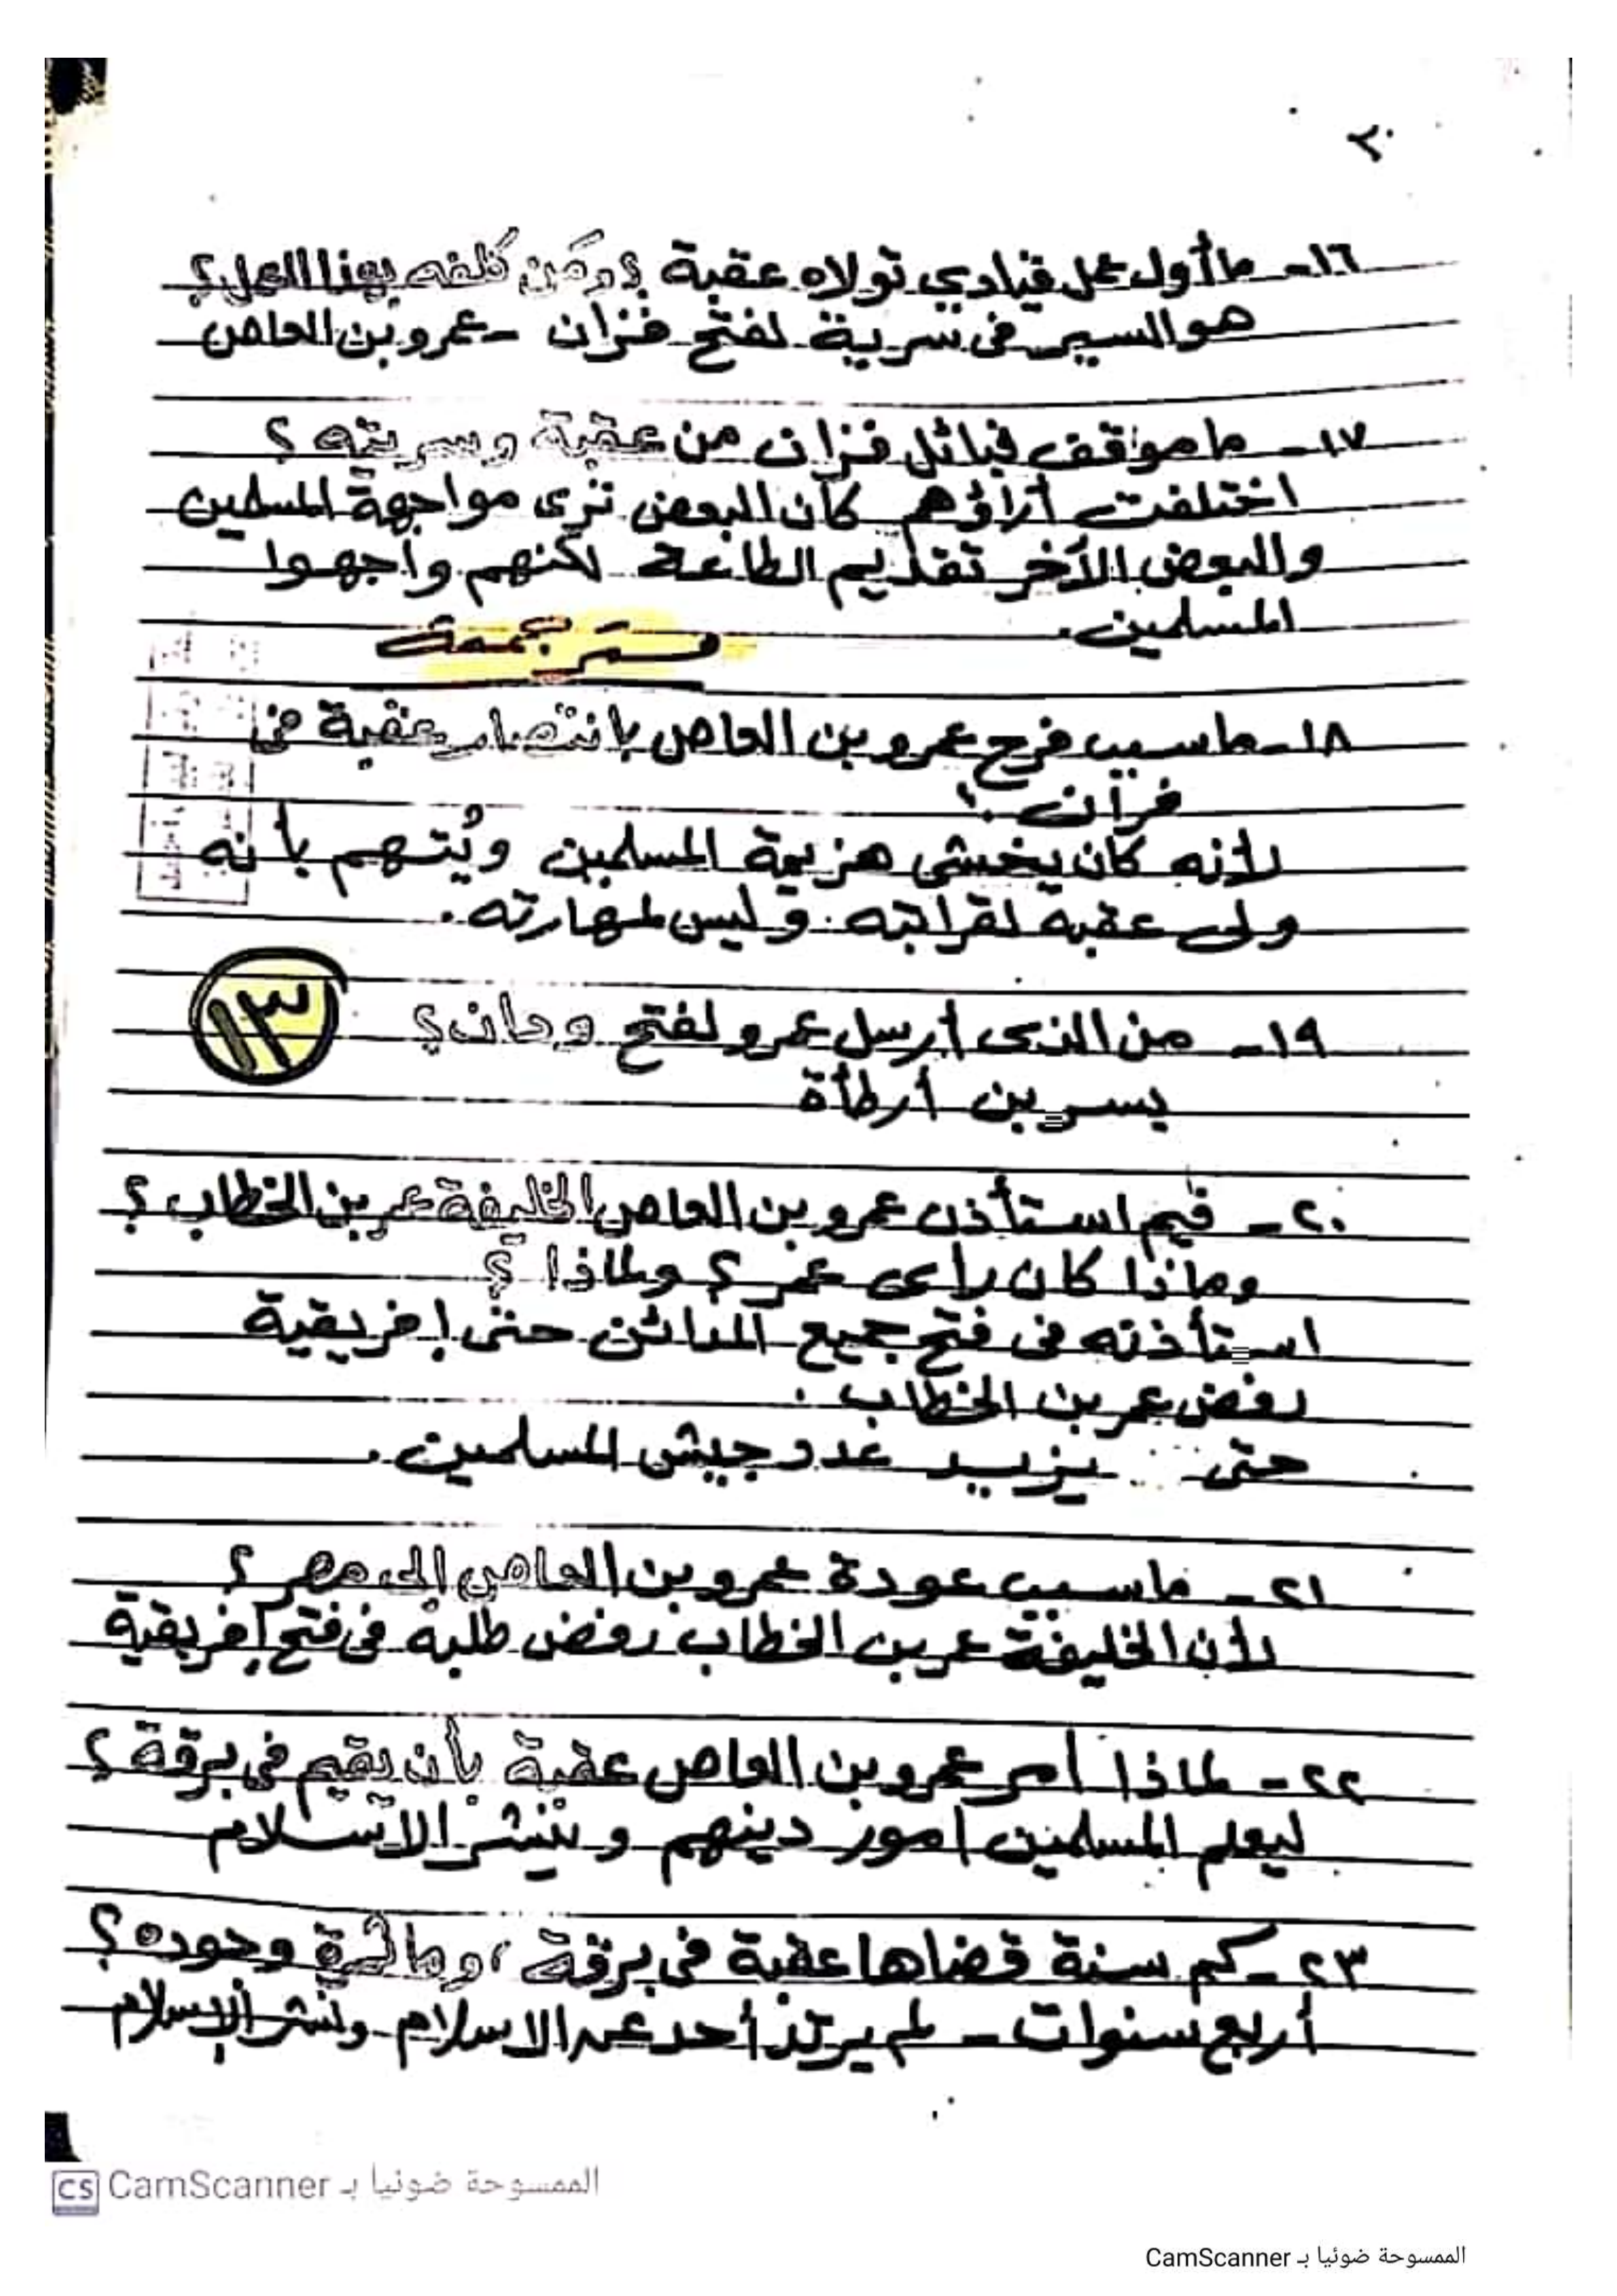 ٢٠
١٦- ما أول عمل قيادي تولاه عقبة ؟ ومَن كَلفه بهذا العمل ؟
هو السير في سرية لفتح فزان - عمرو بن العاص
١٧- ما موقف قبائل فزان من عقبة وسريته ؟
اختلفت أراؤهم كان البعض ترى مواجهة المسلمين
والبعض الآخر تقديم الطاعة لكنهم واجهوا
المسلمين.
١٨- ما سبب فرح عمرو بن العاص بانتصار عقبة في
فزان ؟
لأنه كان يخشى هزيمة المسلمين ويُتهم بأنه
ولى عقبة لقرابته وليس لمهارته.
١٣
١٩- من الذى أرسل عمرو لفتح ودان ؟
بسر بن أرطأة
٢٠- فيم استأذن عمرو بن العاص الخليفة عمر بن الخطاب ؟
وماذا كان رأى عمر ؟ ولماذا ؟
استأذنه فى فتح جميع المدائن حتى إفريقية
رفض عمر بن الخطاب.
حتى يزيد عدد جيش المسلمين.
٢١- ما سبب عودة عمرو بن العاص إلى مصر ؟
لأن الخليفة عمر بن الخطاب رفض طلبه فى فتح إفريقية
٢٢- لماذا أمر عمرو بن العاص عقبة بأن يقيم فى برقة ؟
ليعلم المسلمين امور دينهم وينشر الاسلام
٢٣- كم سنة قضاها عقبة فى برقة ، وما ثمرة وجوده ؟
أربع سنوات - لم يرتد أحد عن الاسلام ونشر الإسلام
CS CamScanner الممسوحة ضوئيا بـ
الممسوحة ضوئيا بـ CamScanner